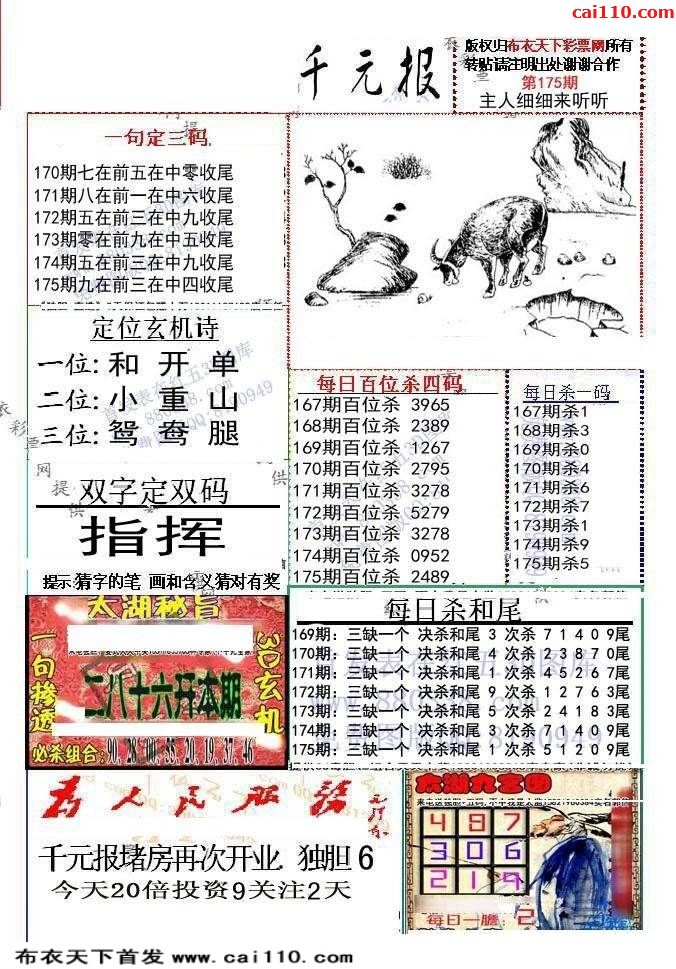 cai110.com
千元报
版权归布衣天下彩票网所有
转贴请注明出处谢谢合作
第175期
主人细细来听听
一句定三码
170期七在前五在中零收尾
171期八在前一在中六收尾
172期五在前三在中九收尾
173期零在前九在中五收尾
174期五在前三在中九收尾
175期九在前三在中四收尾
定位玄机诗
一位: 和 开 单
二位: 小 重 山
三位: 鸳 鸯 腿
双字定双码
指挥
提示:猜字的笔 画和含义猜对有奖
每日百位杀四码
167期百位杀 3965
168期百位杀 2389
169期百位杀 1267
170期百位杀 2795
171期百位杀 3278
172期百位杀 5279
173期百位杀 3278
174期百位杀 0952
175期百位杀 2489
每日杀一码
167期杀1
168期杀3
169期杀0
170期杀4
171期杀6
172期杀7
173期杀1
174期杀9
175期杀5
太湖秘旨
一句掺透
3D玄机
二八十六开本期
必杀组合: 90, 28, 00, 55, 20, 19, 37, 46
每日杀和尾
169期: 三缺一个 决杀和尾 3 次杀 7 1 4 0 9尾
170期: 三缺一个 决杀和尾 4 次杀 2 3 8 7 0尾
171期: 三缺一个 决杀和尾 1 次杀 4 5 2 6 7尾
172期: 三缺一个 决杀和尾 9 次杀 1 2 7 6 3尾
173期: 三缺一个 决杀和尾 5 次杀 2 4 1 8 3尾
174期: 三缺一个 决杀和尾 3 次杀 7 1 4 0 9尾
175期: 三缺一个 决杀和尾 5 次杀 3 1 2 0 9尾
为人民服务
千元报堵房再次开业 独胆 6
今天20倍投资9关注2天
太湖九宫图
4 9 7
3 0 6
2 1 9
每日一胆: 2
布衣天下首发 www.cai110.com